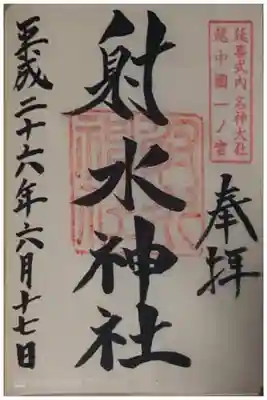 延喜式内 名神大社
越中國一ノ宮
奉拝
射水神社
平成二十六年六月十七日